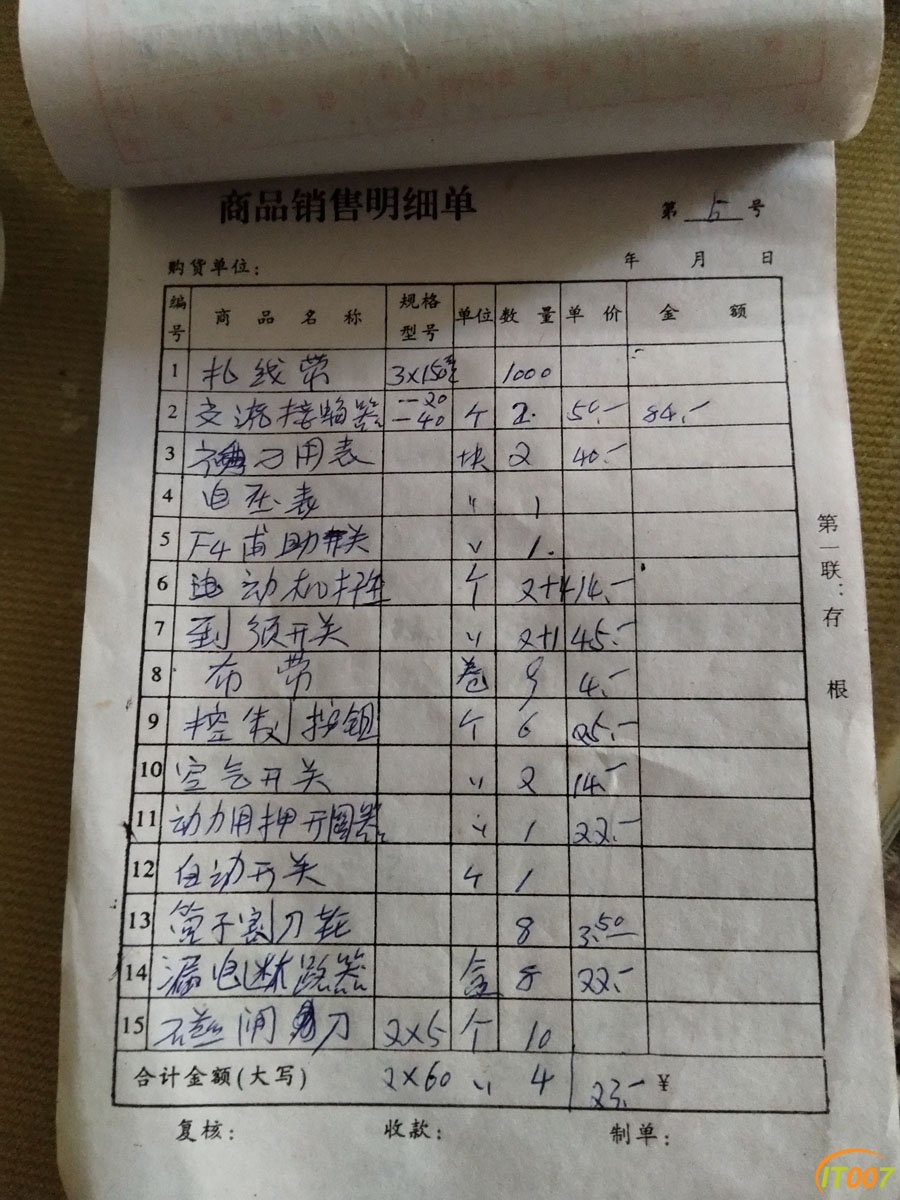 商品销售明细单
第 5 号
购货单位： 年 月 日
编号 商品名称 规格型号 单位 数量 单价 金额
1 扎线带 3×150 1000
2 交流接触器 -20 -40 个 2. 50.- 84.-
3 万用表 块 2 40.-
4 电压表 〃 1
5 F4 甫助开关 〃 1.
6 电动机 个 2+4 14.-
7 到须开关 〃 2+1 45.-
8 布带 卷 9 4.-
9 控制按钮 个 6 25.-
10 空气开关 〃 2 14.-
11 动力用押开 〃 1 22.-
12 自动开关 个 1
13 管子割刀轮 8 3.50
14 漏电断路器 盒 8 22.-
15 闸刀 2×5 个 10
合计金额(大写) 2×60 〃 4 23.- ¥
复核： 收款： 制单：
第一联：存根
IT007